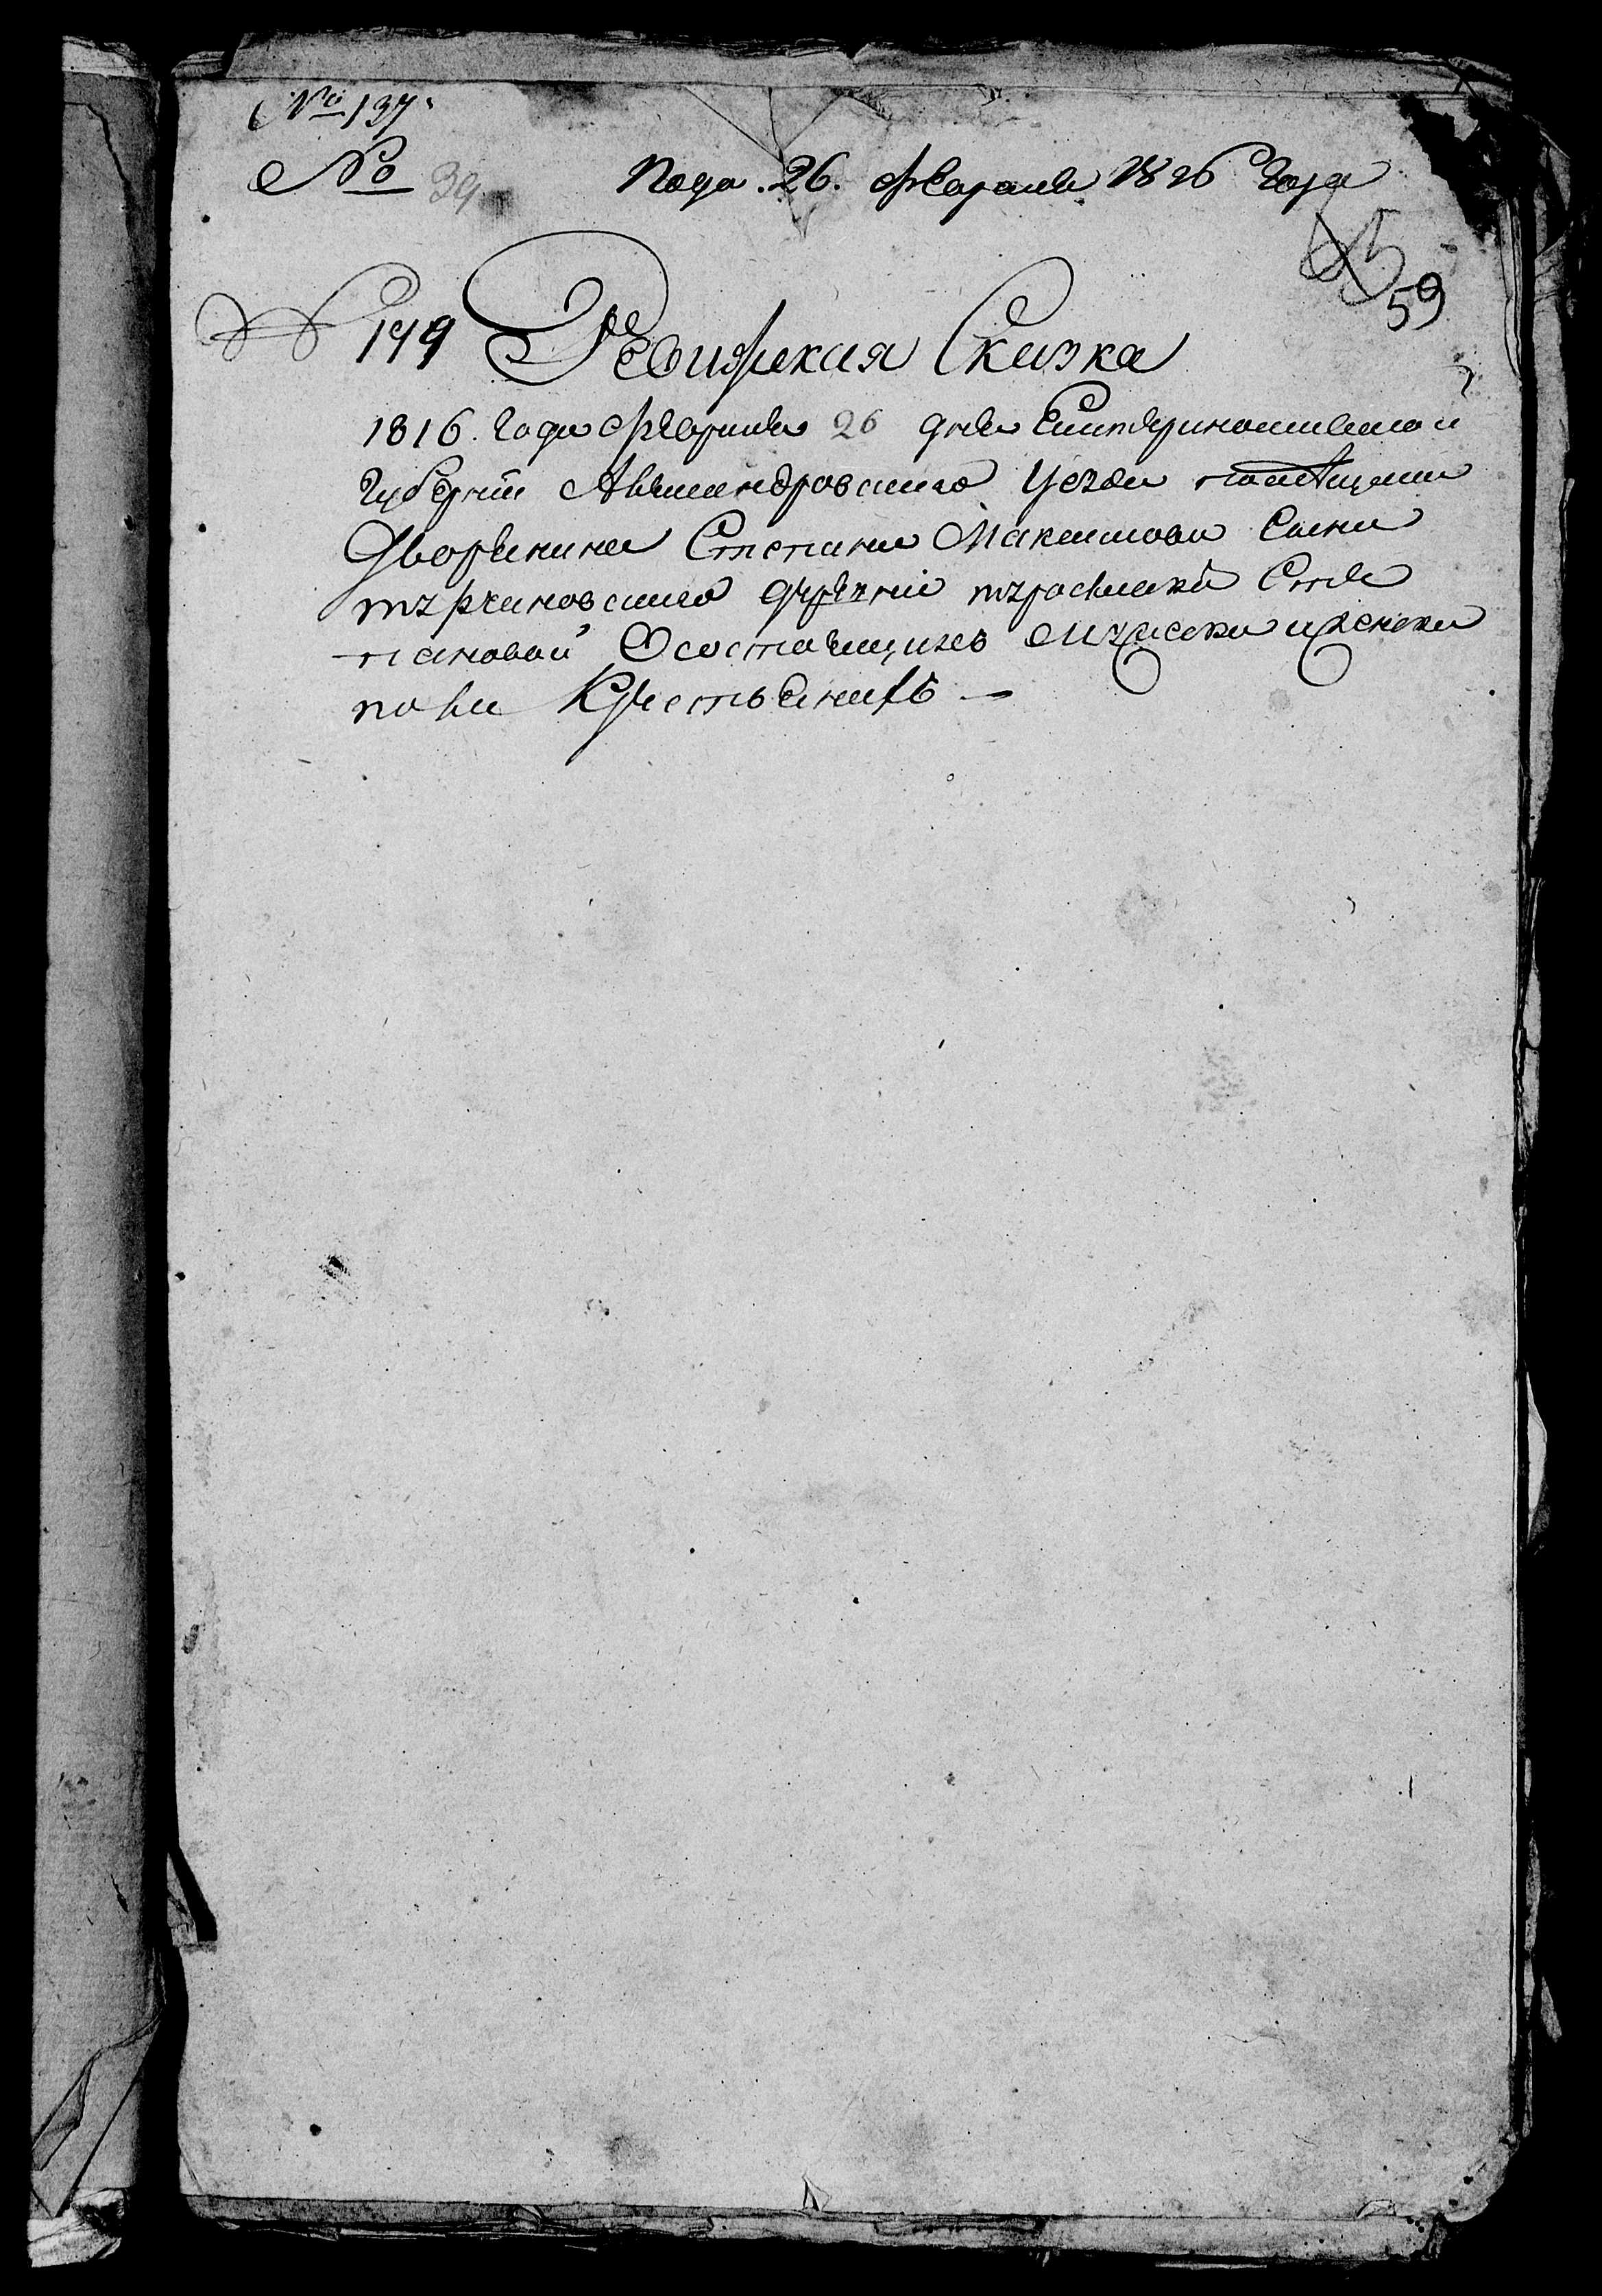 № 137.
№ 39
Пода. 26. февраля 1816 года
65
59
№ 149 Ревизская Сказка
1816. Года февраля 26 дня Екатеринославской
Губернии Александровского уезда помещика
Дворянина Степана Максимова Сына
деревни Сте
пановой О состоящихъ мужеска и женска
пола Крестьянахъ